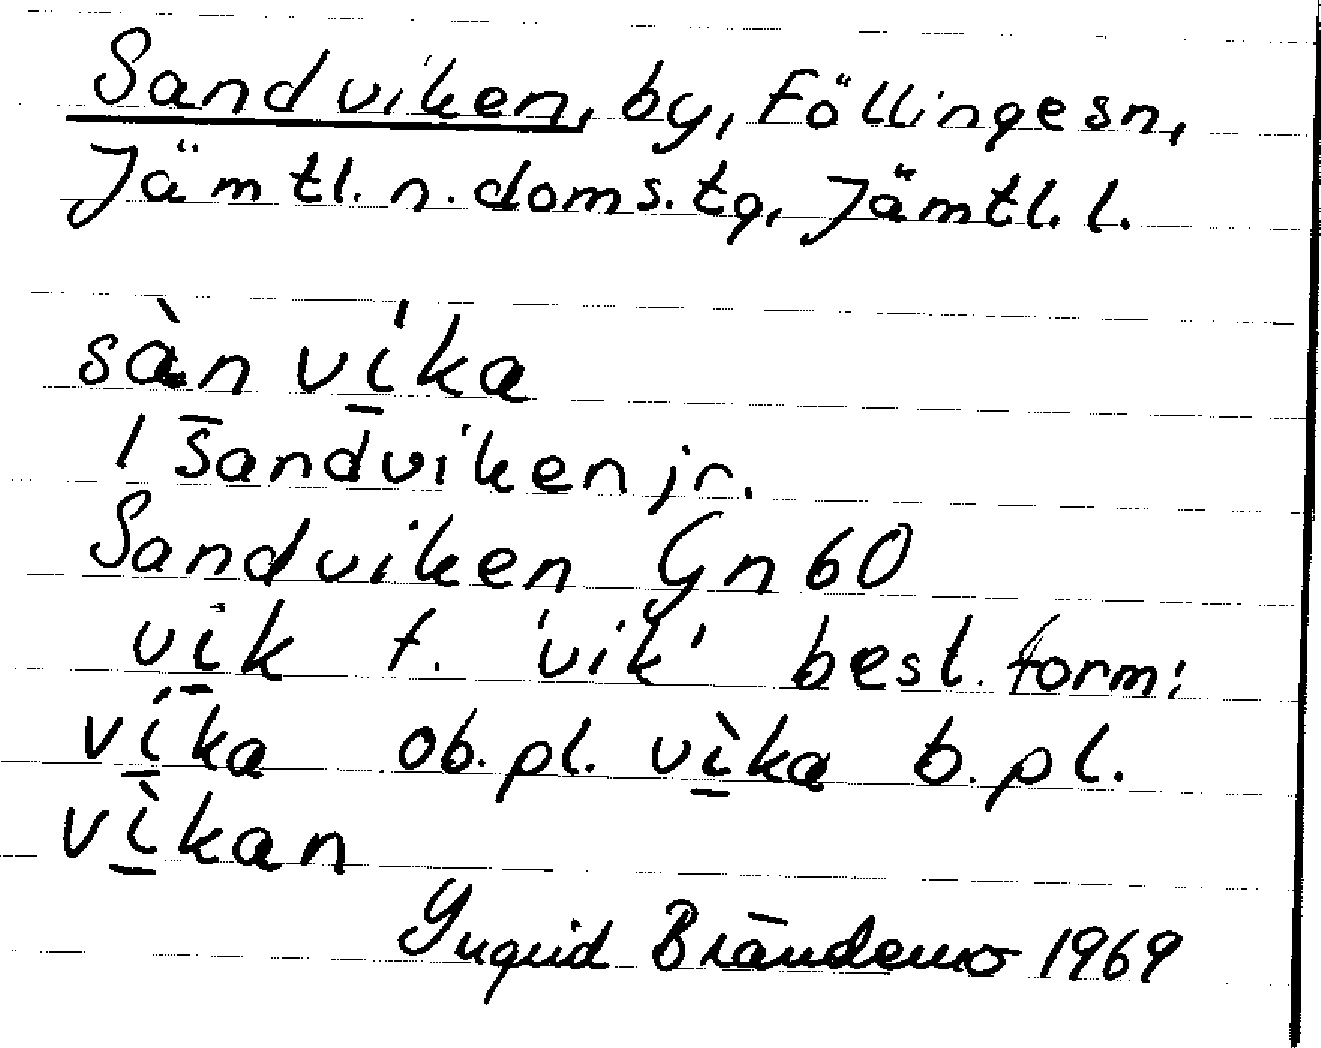 Sandviken, by, Föllinge sn,
Jämtl. n. doms. tg, Jämtl. l.
sàn ví̱ka
/ Sandviken jr.
Sandviken Gn 60
vi̱k f. 'vik' best. form:
ví̱ka ob. pl. vì̱ka b. pl.
vì̱kan
Ingrid Brändemo 1969